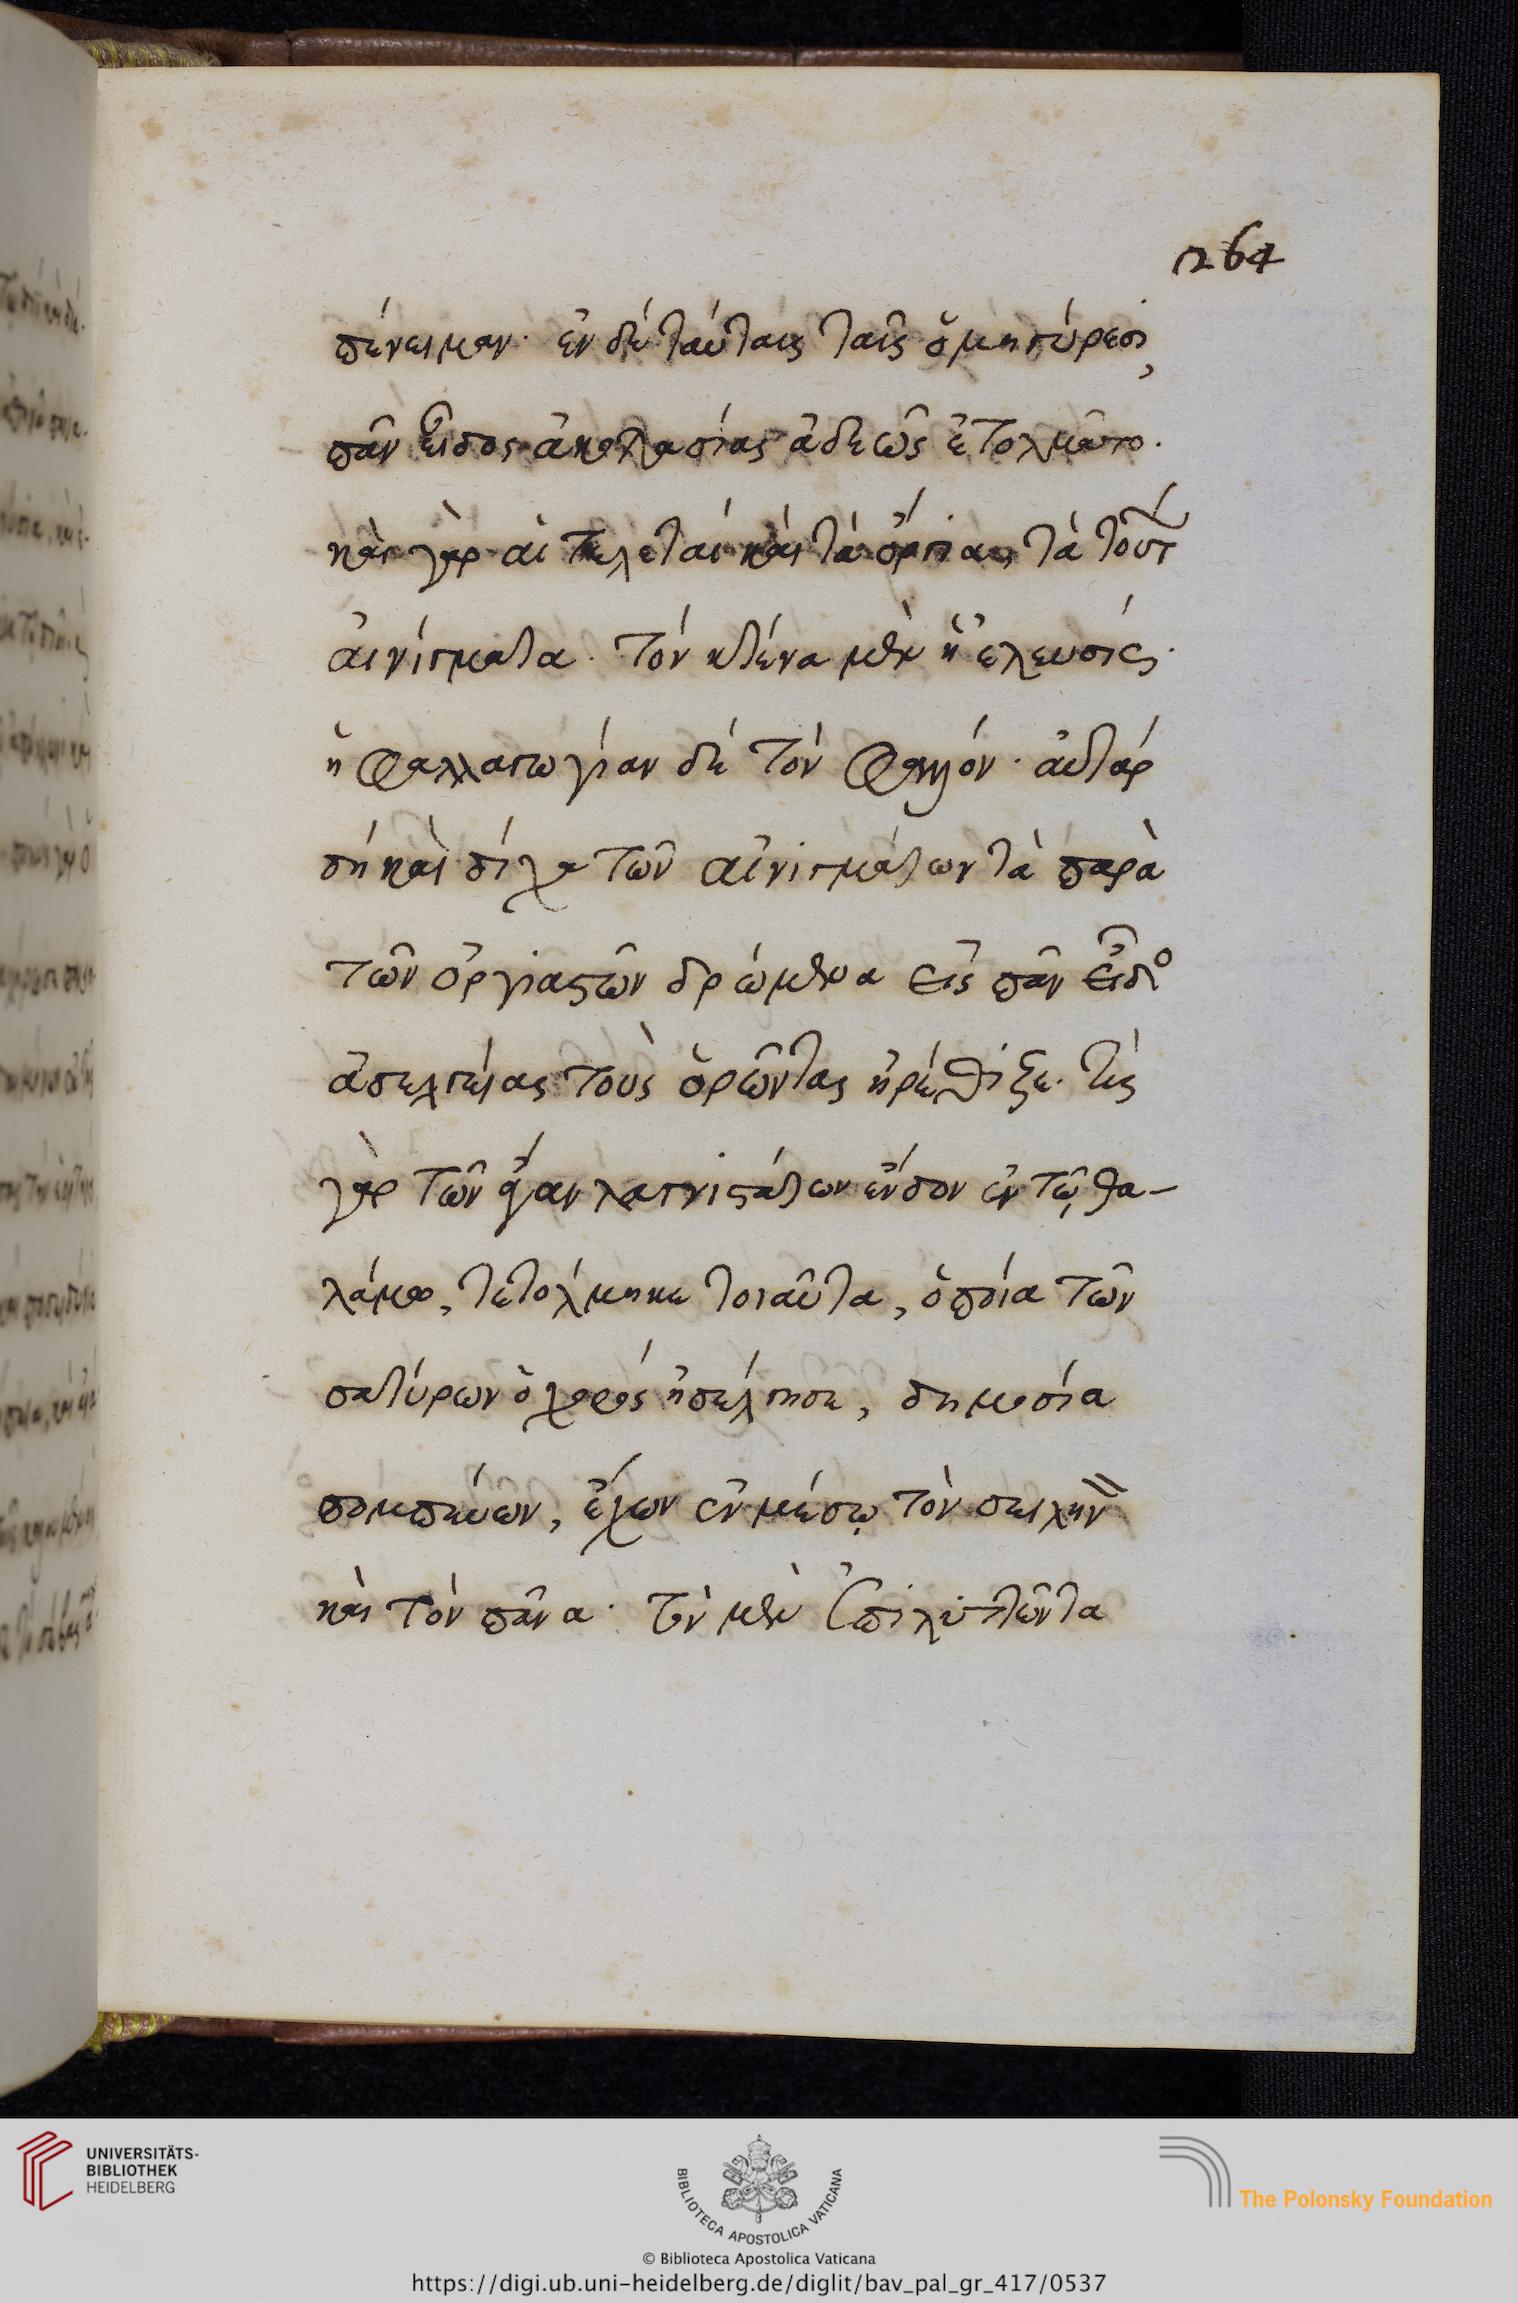 264
πένειμαν· ἐν δὲ ταύταις ταῖς ὁμηγύρεσι,
πᾶν εἶδος ἀκολασίας ἀδεῶς ἐτολμᾶτο.
καὶ γὰρ αἱ τελεταὶ καὶ τὰ ὄργια, τὰ τούτ
αἰνίγματα. τὸν κτένα μὲν ἡ ἐλευσίς.
ἡ φαλλαγωγίαν δὲ τὸν φαλλόν· αὐτὰρ
δὴ καὶ δίχα τῶν αἰνιγμάτων τὰ παρὰ
τῶν ὀργιαστῶν δρώμενα εἰς πᾶν εἶδο
ἀσελγείας τοὺς ὁρῶντας ἠρέθιζε. τίς
γὰρ τῶν ἄγαν λαγνιστάτων ἔνδον ἐν τῷ θα-
λάμῳ, τετόλμηκε τοιαῦτα, ὁποῖα τῶν
σατύρων ὁ χορὸς ἠσέλγησε, δημοσία
πομπεύων, ἔχων ἐν μέσῳ τὸν σειληνὸν
καὶ τὸν πᾶνα· τὸν μὲν ἐπιλυττῶντα
UNIVERSITÄTS-
BIBLIOTHEK
HEIDELBERG
BIBLIOTECA APOSTOLICA VATICANA
The Polonsky Foundation
© Biblioteca Apostolica Vaticana
https://digi.ub.uni-heidelberg.de/diglit/bav_pal_gr_417/0537